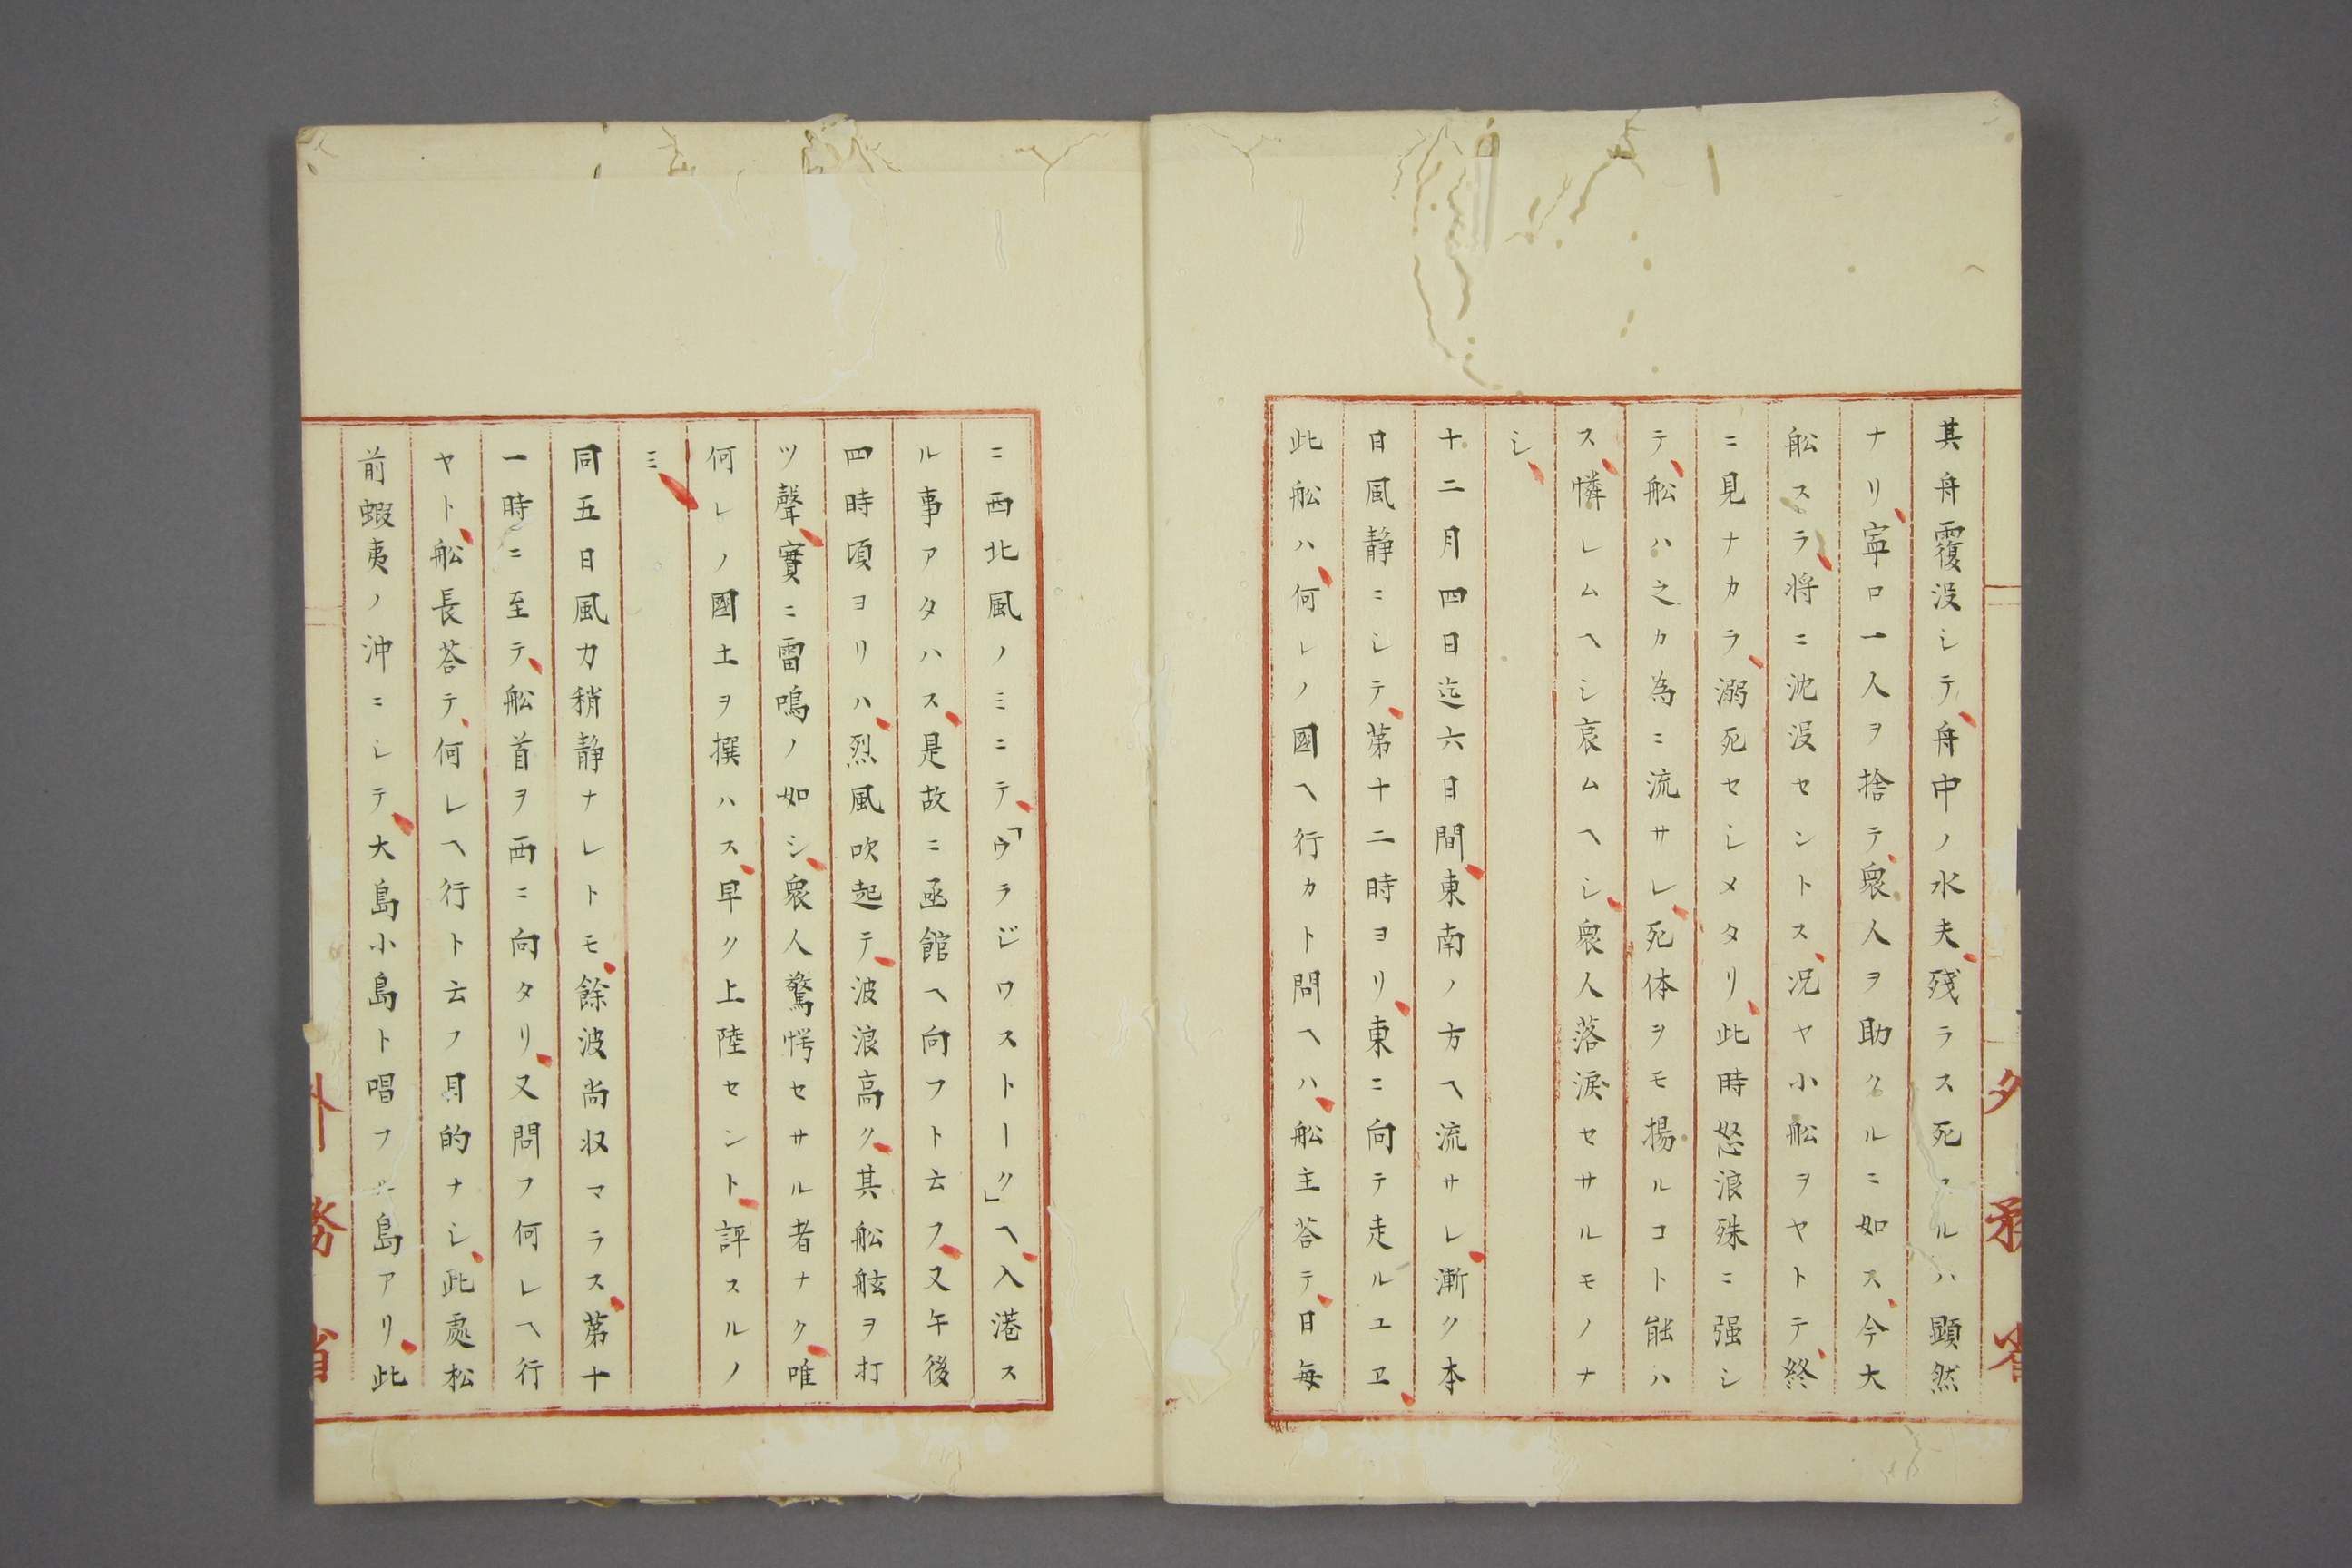 其舟覆没シテ、舟中ノ水夫、残ラス死スルハ顕然
ナリ、寧ロ一人ヲ捨テ、衆人ヲ助クルニ如ス、今大
舩スラ、将ニ沈没セントス、况ヤ小舩ヲヤトテ、終
ニ見ナカラ、溺死セシメタリ、此時怒浪殊ニ强シ
テ、舩ハ之カ為ニ流サレ、死体ヲモ揚ルコト能ハ
ス、憐レムヘシ哀ムヘシ、衆人落涙セサルモノナ
シ、
十二月四日迄六日間、東南ノ方ヘ流サレ、漸ク本
日風静ニシテ、第十二時ヨリ、東ニ向テ走ルユヱ、
此舩ハ、何レノ國ヘ行カト問ヘハ、舩主荅テ、日毎
ニ西北風ノミニテ、「ウラジワストーク」ヘ、入港ス
ル事アタハス、是故ニ函館ヘ向フト云フ、又午後
四時頃ヨリハ、烈風吹起テ、波浪高ク、其舩舷ヲ打
ツ聲、實ニ雷鳴ノ如シ、衆人驚愕セサル者ナク、唯
何レノ國土ヲ撰ハス、早ク上陸セント、評スルノ
ミ、
同五日風力稍静ナレトモ、餘波尚収マラス、第十
一時ニ至テ、舩首ヲ西ニ向タリ、又問フ何レヘ行
ヤト、舩長荅テ、何レヘ行ト云フ目的ナシ、此處松
前蝦夷ノ沖ニシテ、大島小島ト唱フ二島アリ、此
外務省
外務省